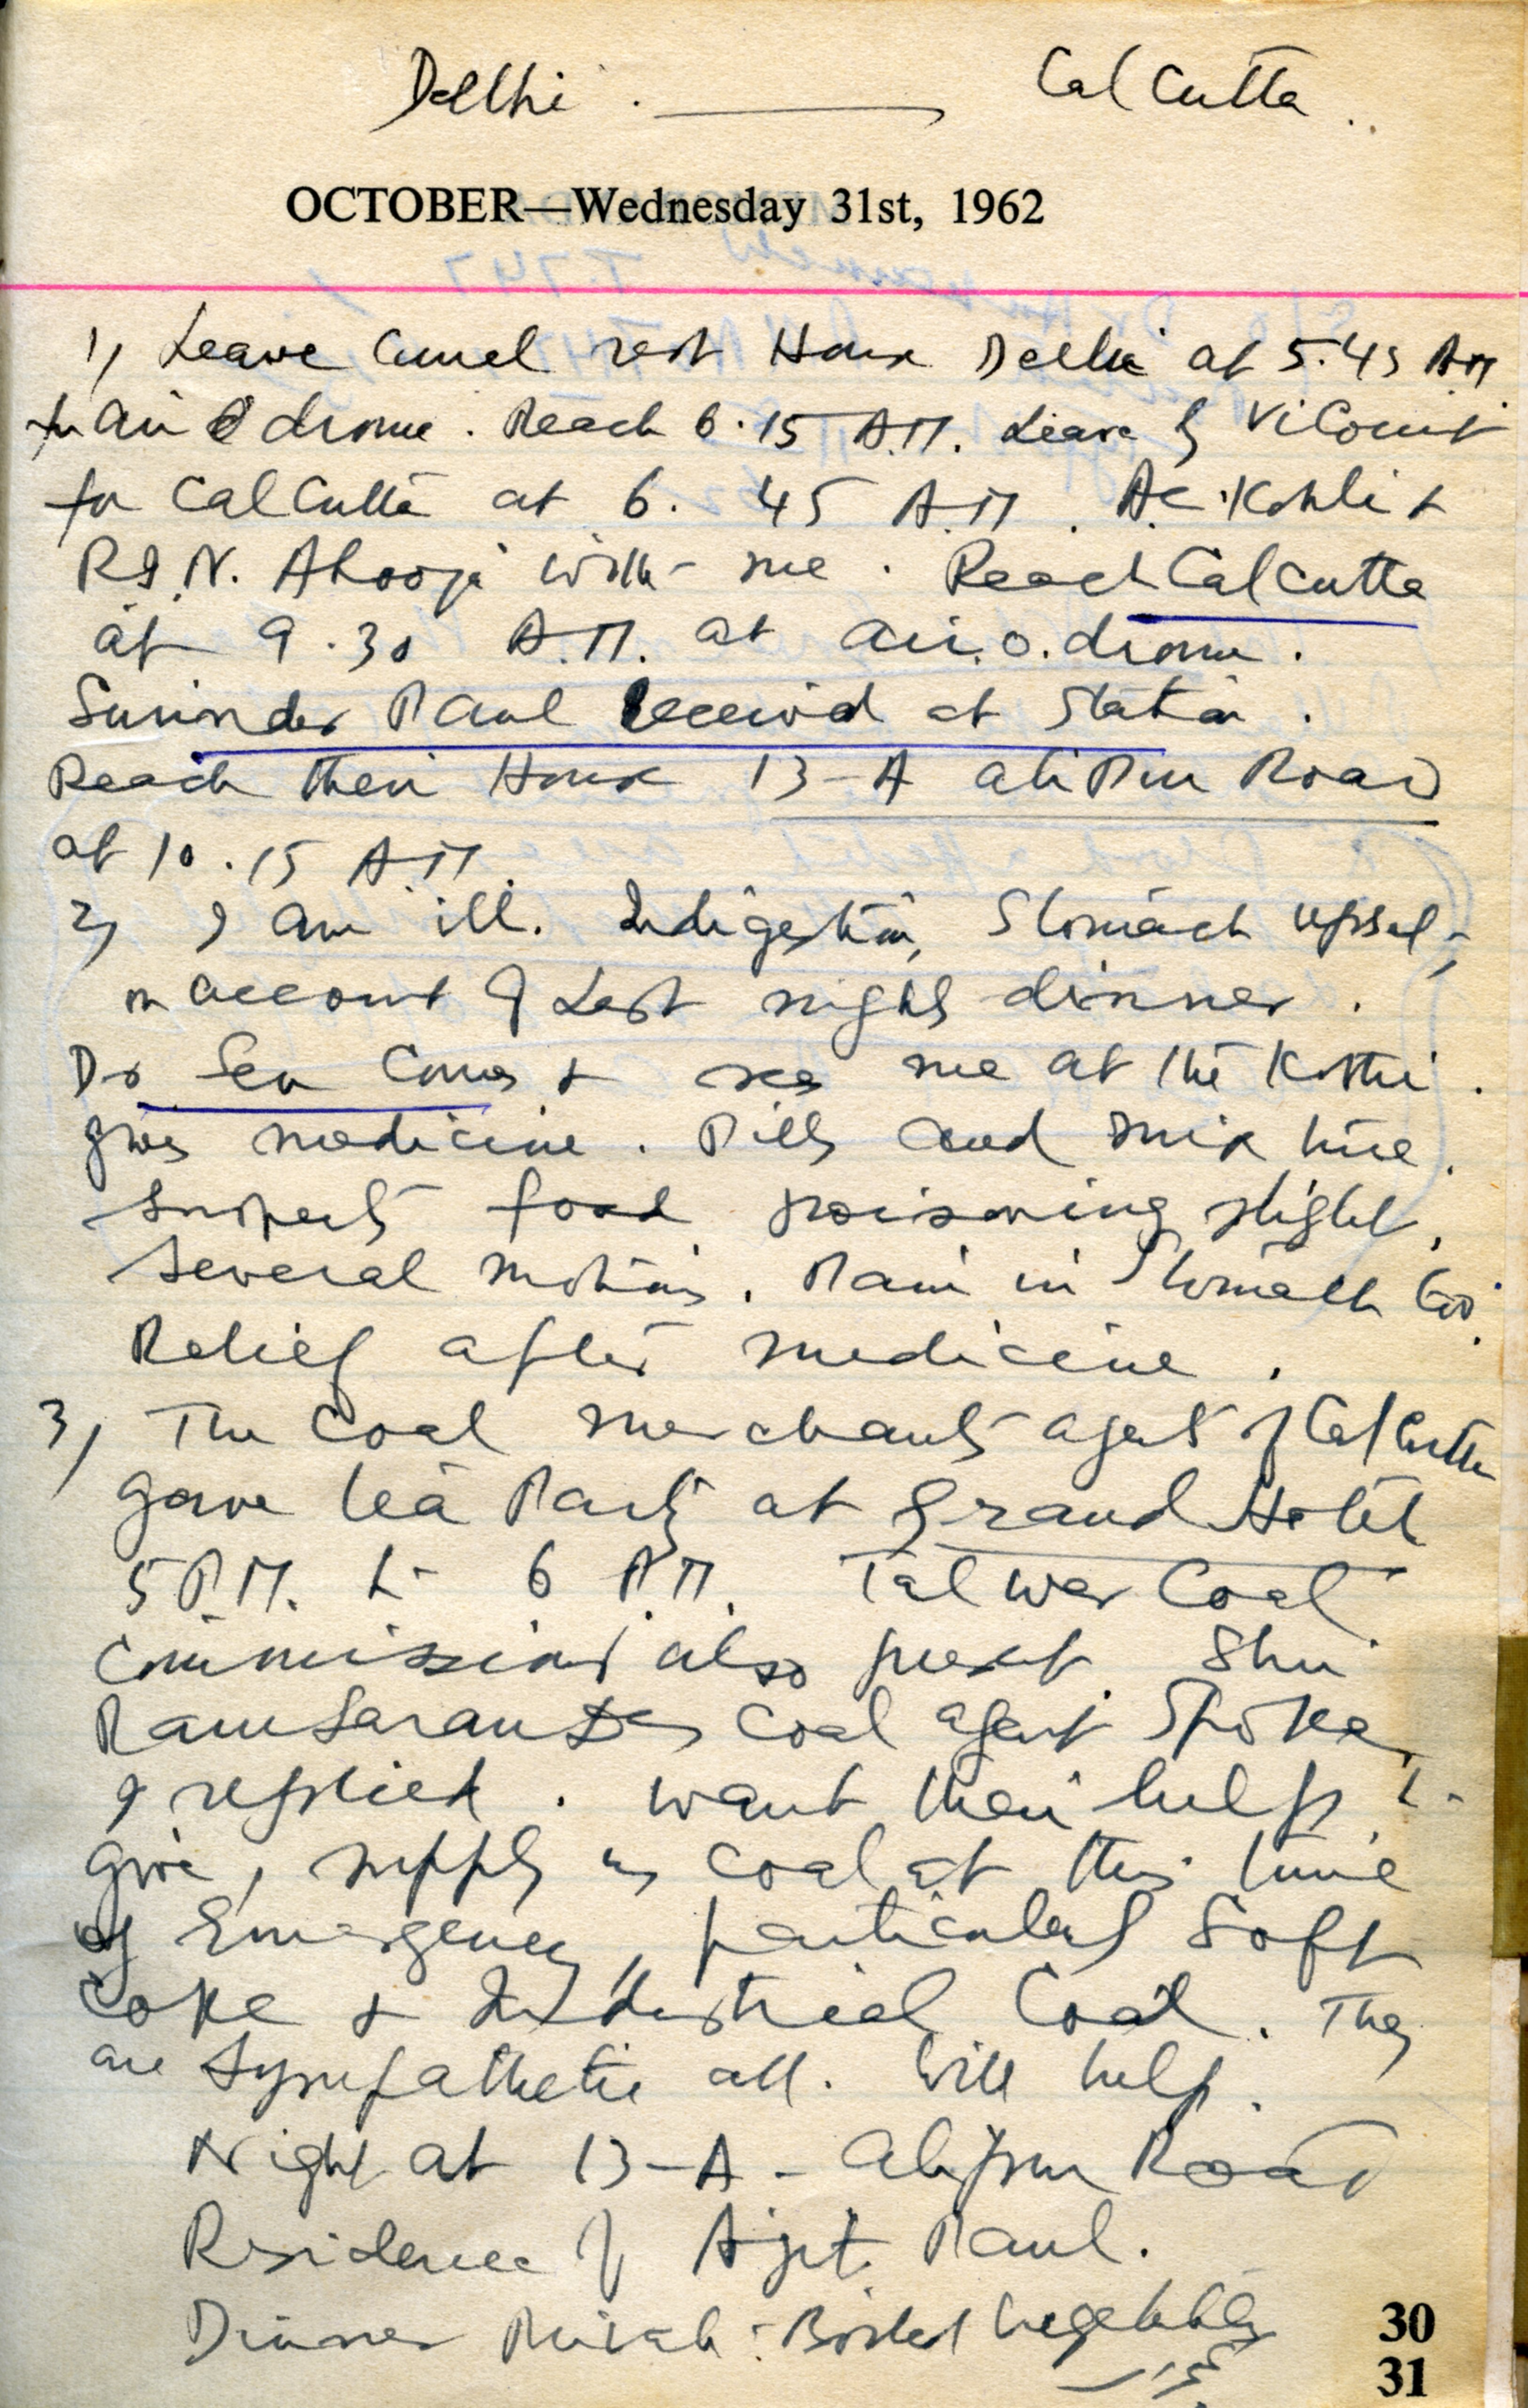 Delhi . ——— Calcutta ..
OCTOBER—Wednesday 31st, 1962
1, Leave Canal rest House Delhi at 5.45 A.M
for air o drome. Reach 6.15 A.M. Leave by Vicount
for Calcutta at 6. 45 A.M. A.C. Kohli +
R.N. Ahooja with me. Reach Calcutta
at 9.30 A.M. at air.o.drome.
Surinder Paul received at Station.
Reach their House 13-A alipur Road
at 10.15 A.M.
2, I am ill. Indigestion, Stomach upset,
on account of Last nights dinner.
Dr Sen comes + sees me at the Kothi.
gives medicine. Pills and mixture.
suspects food poisoning slight,
several motions. Pain in Stomach too.
Relief after medicine.
3, The Coal merchants agents of Calcutta
gave tea Party at Grand Hotel
5 P.M. to 6 P.M. Talwar Coal
Commissioner also present. Shri
Ram Saran Das Coal agent Spoke,
I replied. want their help to
give, supply us coal at this time
of Emergency, particularly Soft
coke & Industrial Coal. They
are sympathetic all. Will help.
Night at 13-A- alipur Road
Residence of Ajit Paul.
Dinner : Boiled Vegetables
30
31